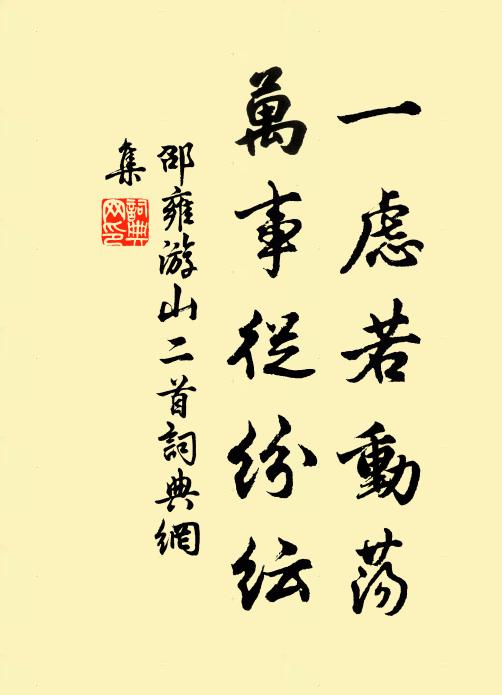 一慮若動蕩
萬事從紛紜
邵雍游山二首詞典網
集
詞典
网印